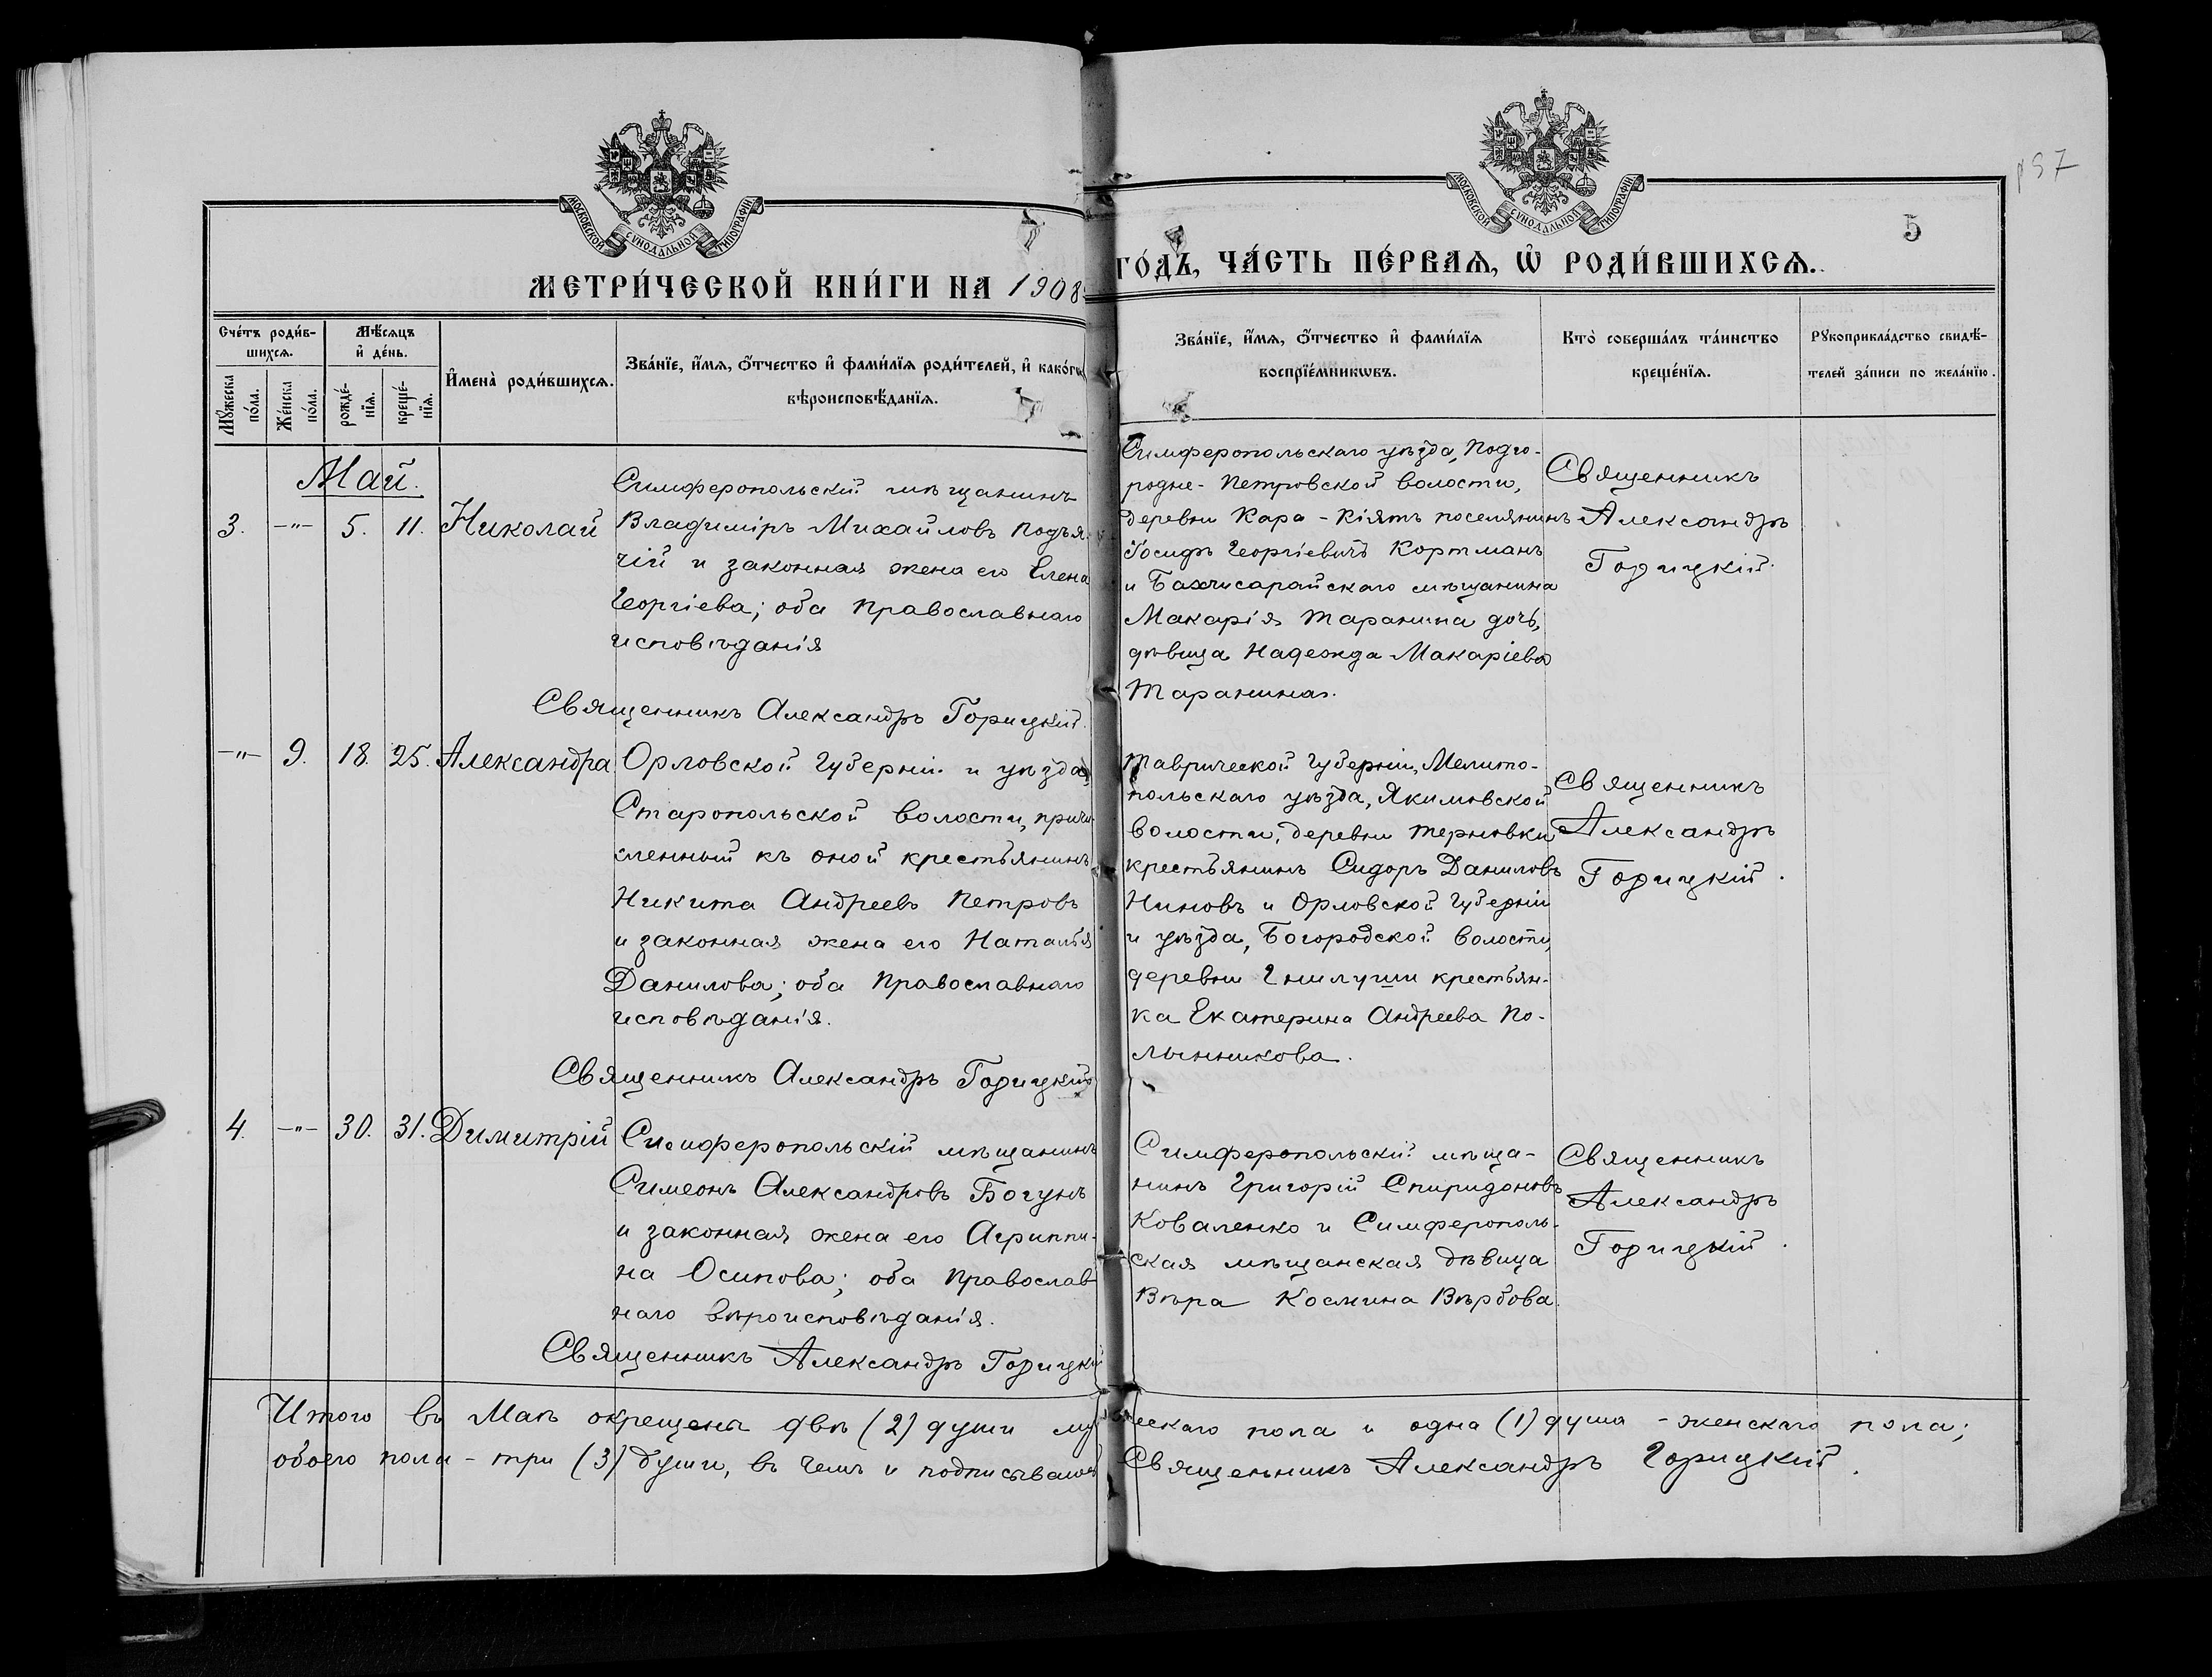 МОСКОВСКОЙ СѴНОДАЛЬНОЙ ТИПОГРАФІИ
МОСКОВСКОЙ СѴНОДАЛЬНОЙ ТИПОГРАФІИ
5
МЕТРИ́ЧЕСКОЙ КНИ́ГИ НА 1908
ГО́ДЪ, ЧА́СТЬ ПЕ́РВАѦ, Ѡ҆ РОДИ́ВШИХСѦ.
Сче́тъ роди́в-
шихсѧ.
Мѣ́сѧцъ
и҆ де́нь.
Мꙋ́жеска
по́ла.
Же́нска
по́ла.
рожде́-
нїѧ.
креще́-
нїѧ.
И҆мена̀ роди́вшихсѧ.
Зва́нїе, и҆́мѧ, ѻ҆́тчество и҆ фами́лїѧ роди́телей, и҆ како́гѡ
вѣроисповѣ́данїѧ.
Зва́нїе, и҆́мѧ, ѻ҆́тчество и҆ фами́лїѧ
воспрїе́мникѡвъ.
Кто̀ соверша́лъ та́инство
креще́нїѧ.
Рꙋкоприкла́дство свидѣ́-
телей за́писи по жела́нїю.
Май.
3. -"- 5. 11. Николай
Симферопольскій мѣщанинъ
Владиміръ Михайловъ Подъя-
чій и законная жена его Елена
Георгіева; оба православнаго
исповѣданія
Священникъ Александръ Горицкій.
Симферопольскаго уѣзда, Подго-
родне-Петровской волости,
деревни Кара-Кіятъ поселянинъ
Іосифъ Георгіевичъ Кортманъ
и Бахчисарайскаго мѣщанина
Макарія Таранина дочь,
дѣвица Надежда Макаріева
Таранина.
Священникъ
Александръ
Горицкій.
-"- 9. 18. 25. Александра
Орловской губерніи и уѣзда,
Старопольской волости, причи-
сленный къ оной крестьянинъ
Никита Андреевъ Петровъ
и законная жена его Наталья
Данилова; оба православнаго
исповѣданія.
Священникъ Александръ Горицкій
Таврической губерніи, Мелито-
польскаго уѣзда, Якимовской
волости, деревни Терновки
крестьянинъ Сидоръ Даниловъ
Ниновъ и Орловской губерніи
и уѣзда, Богородской волости,
деревни Гнилуши крестьян-
ка Екатерина Андреева По-
лынникова.
Священникъ
Александръ
Горицкій.
4. -"- 30. 31. Димитрій
Симферопольскій мѣщанинъ
Симеонъ Александровъ Богунъ
и законная жена его Агриппи-
на Осипова; оба православ-
наго вѣроисповѣданія.
Священникъ Александръ Горицкій
Симферопольскій мѣща-
нинъ Григорій Спиридоновъ
Коваленко и Симферополь-
ская мѣщанская дѣвица
Вѣра Космина Вѣрбова.
Священникъ
Александръ
Горицкій.
Итого въ Маѣ окрещены двѣ (2) души мужескаго пола и одна (1) душа - женскаго пола;
обоего пола - три (3) души, въ чемъ и подписываюсь Священникъ Александръ Горицкій.